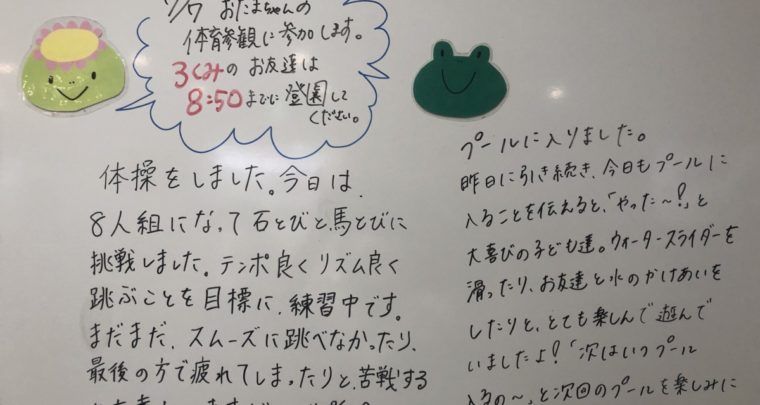 おたまちゃんの
体育参観に参加します。
3くみのお友達は
8:50までに登園して
ください。
体操をしました。今日は
8人組になって石とびと馬とびに
挑戦しました。テンポ良くリズム良く
跳ぶことを目標に、練習中です。
まだまだ、スムーズに跳べなかったり、
最後の方で疲れてしまったりと、苦戦する
プールに入りました。
昨日に引き続き、今日もプールに
入ることを伝えると、「やった〜!」と
大喜びの子ども達。ウォータースライダーを
滑ったり、お友達と水のかけあいを
したりと、とても楽しんで遊んで
いましたよ!「次はいつプール
入るの〜」と次回のプールを楽しみに